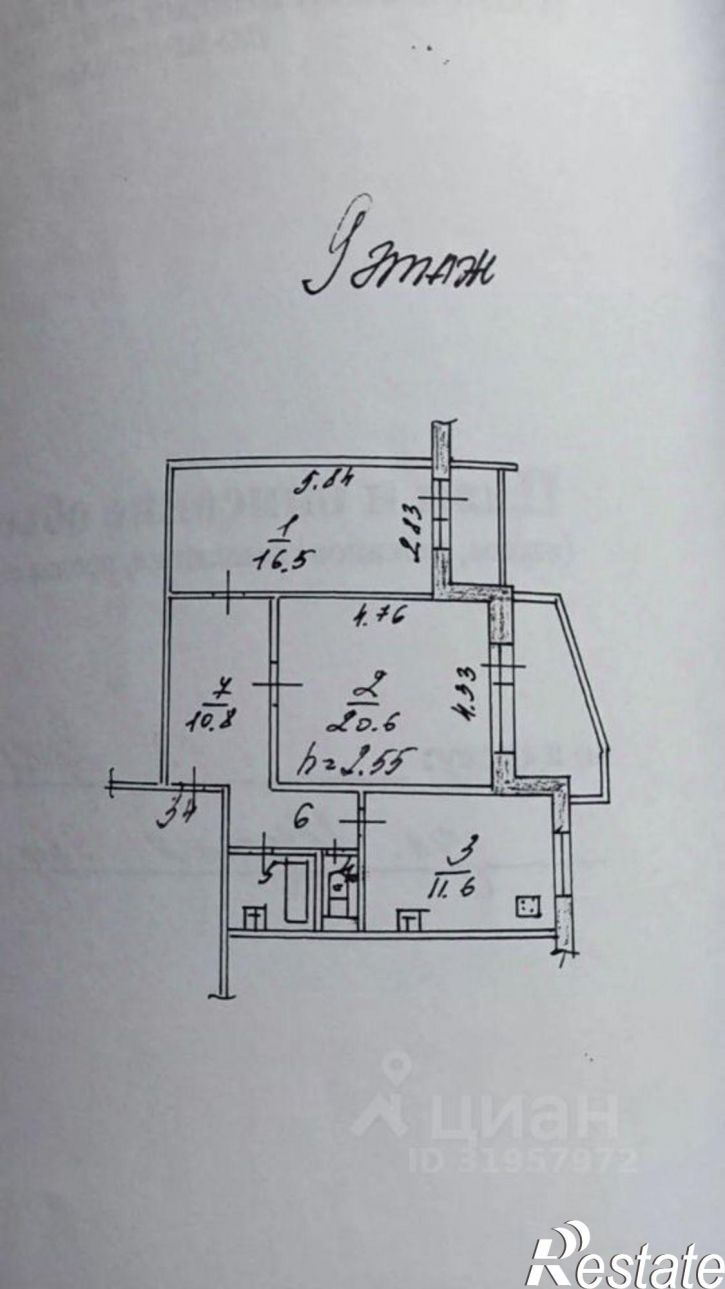 9 этаж
5.84
1
16.5
2.83
4.76
7
10.8
2
20.6
4.33
h=2.55
34
6
5
4
3
11.6
циан
ID 31957972
Restate